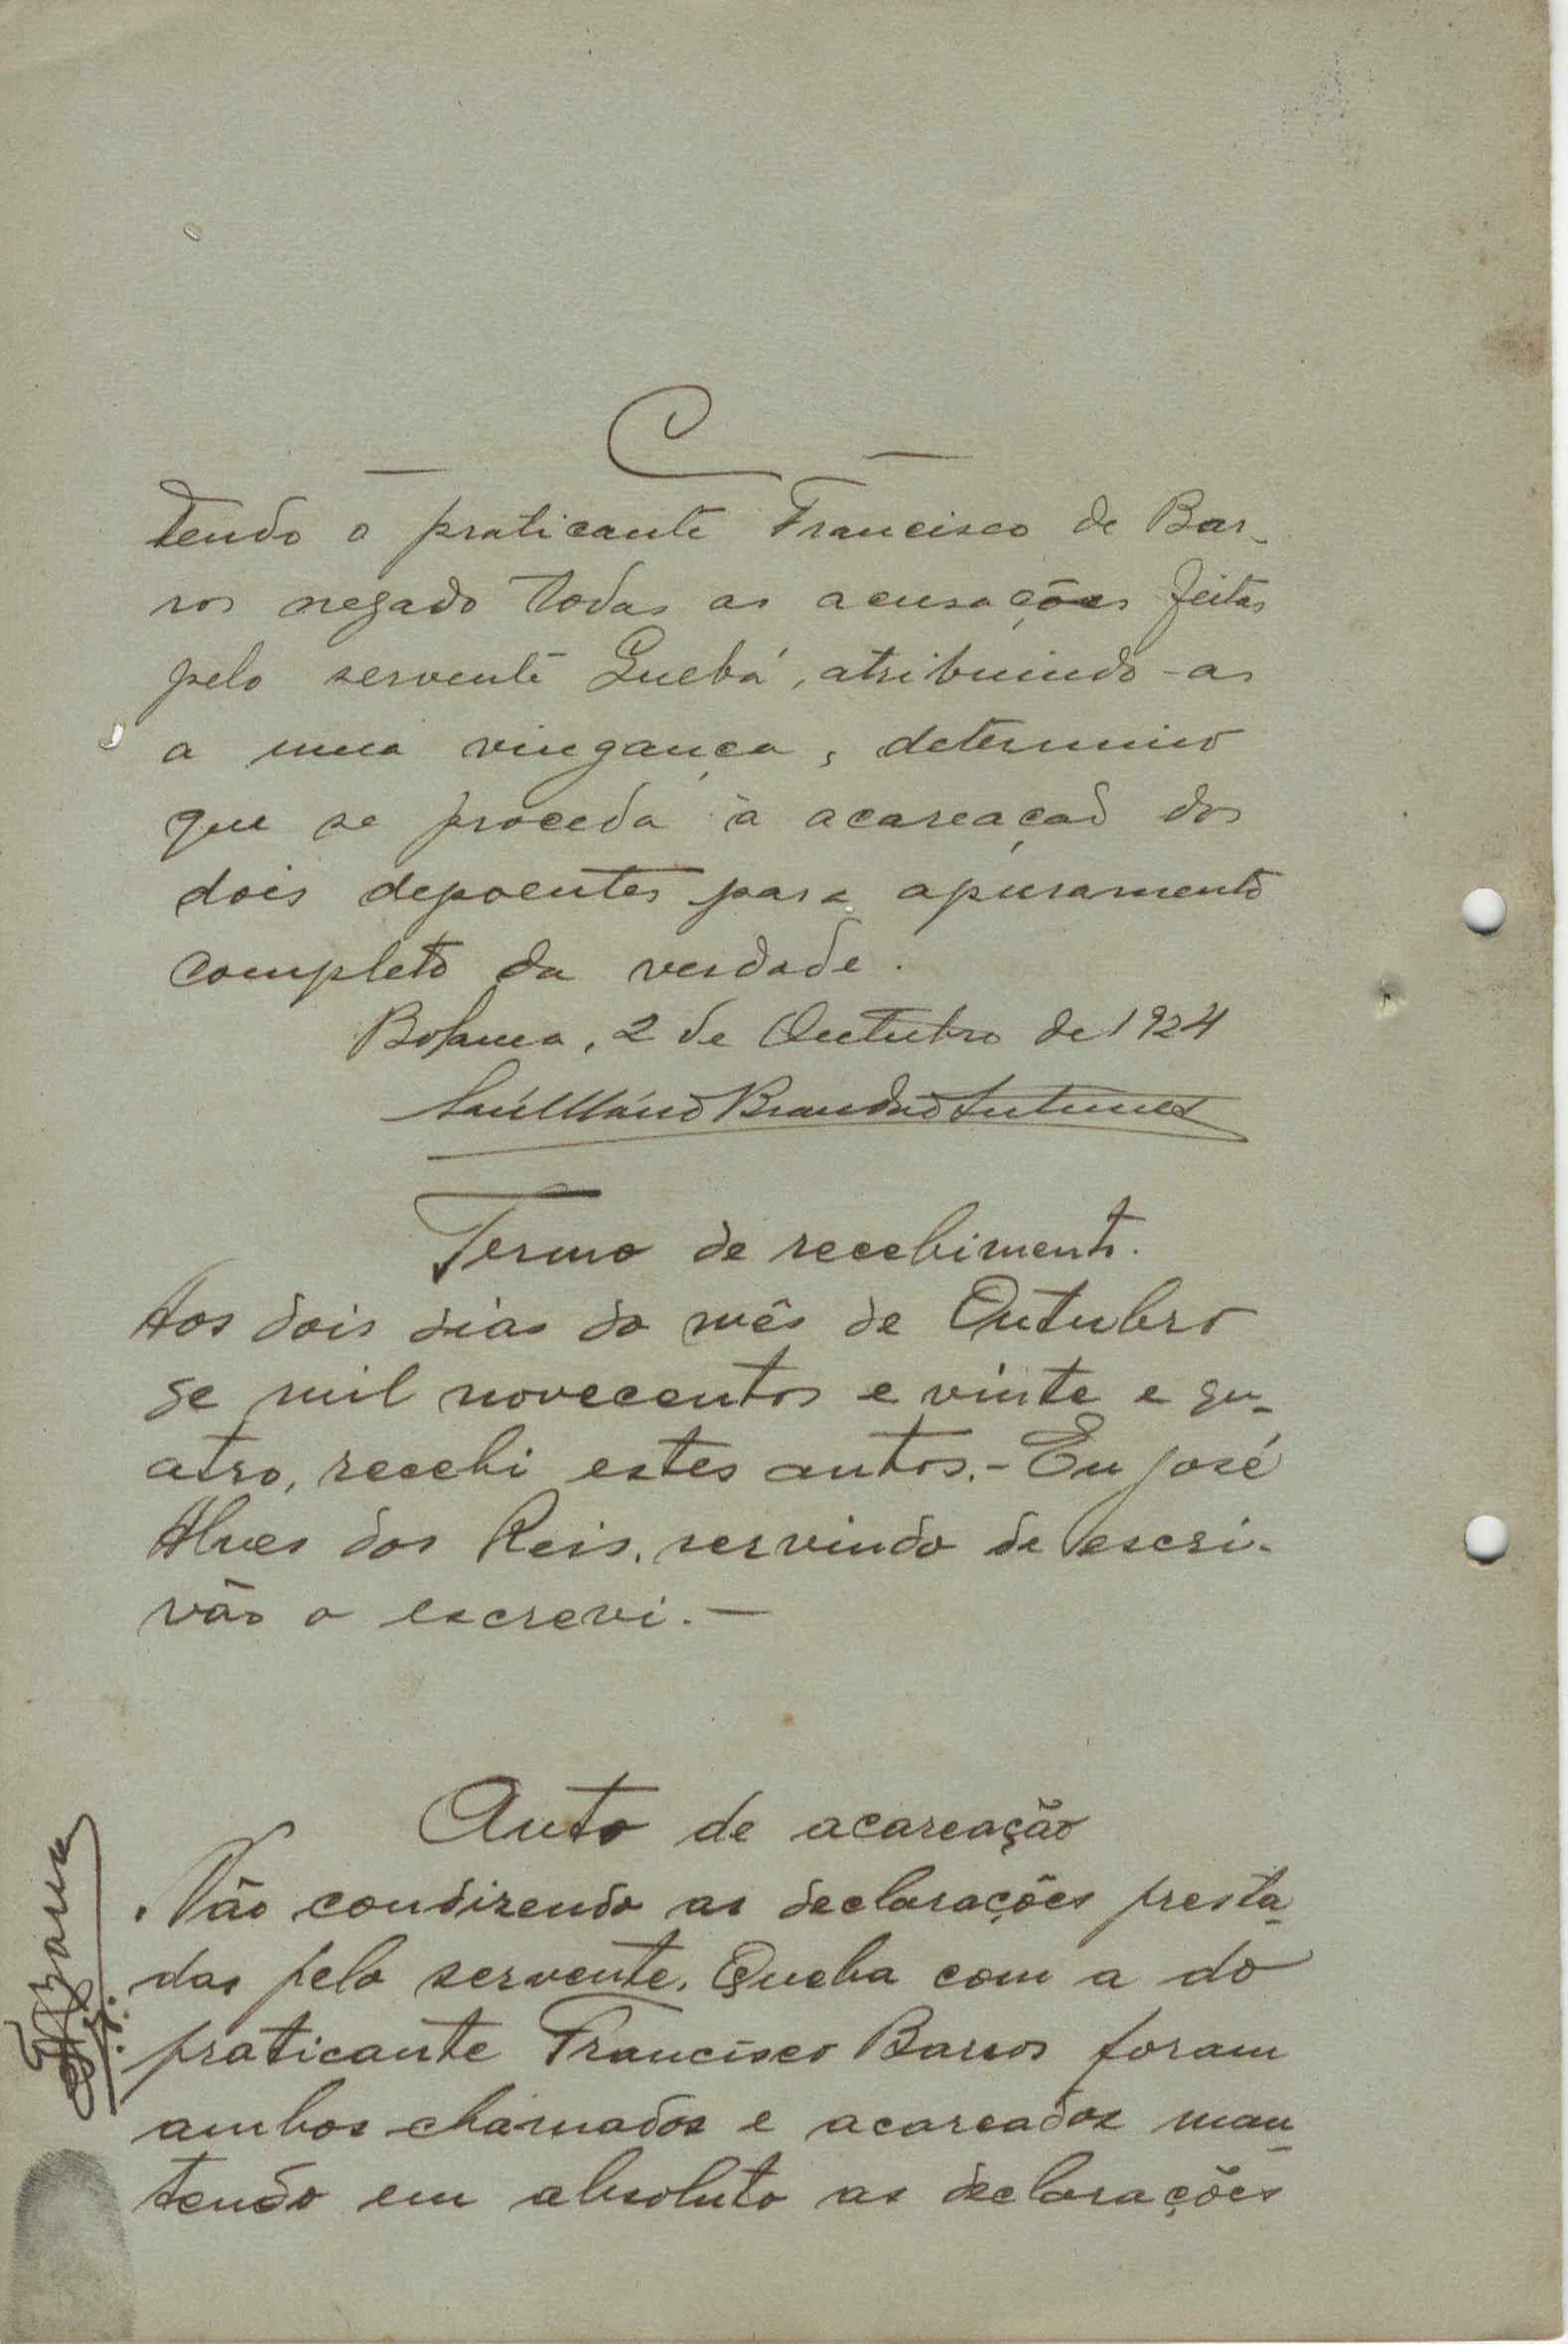 C
Tendo o praticante Francisco de Bar-
ros negado todas as acusações feitas
pelo servente Quebá, atribuindo-as
a uma vingança, determino
que se proceda à acareação dos
dois depoentes para apuramento
completo da verdade.
Bolama, 2 de Outubro de 1924
Brandão Antunes
Termo de recebimento.
Aos dois dias do mês de Outubro
de mil novecentos e vinte e qu-
atro, recebi estes autos.- Eu José
Alves dos Reis, servindo de escri-
vão o escrevi.-
Auto de acareação
Não condizendo as declarações presta-
das pelo servente, Queba com a do
praticante Francisco Barros foram
ambos chamados e acareados man-
tendo em absoluto as declarações